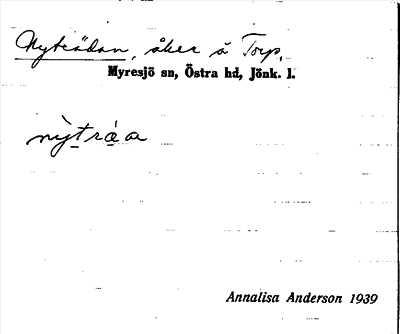 Nyträdan, åker å Torp,
Myresjö sn, Östra hd, Jönk. l.
nỳtráa
Annalisa Anderson 1939